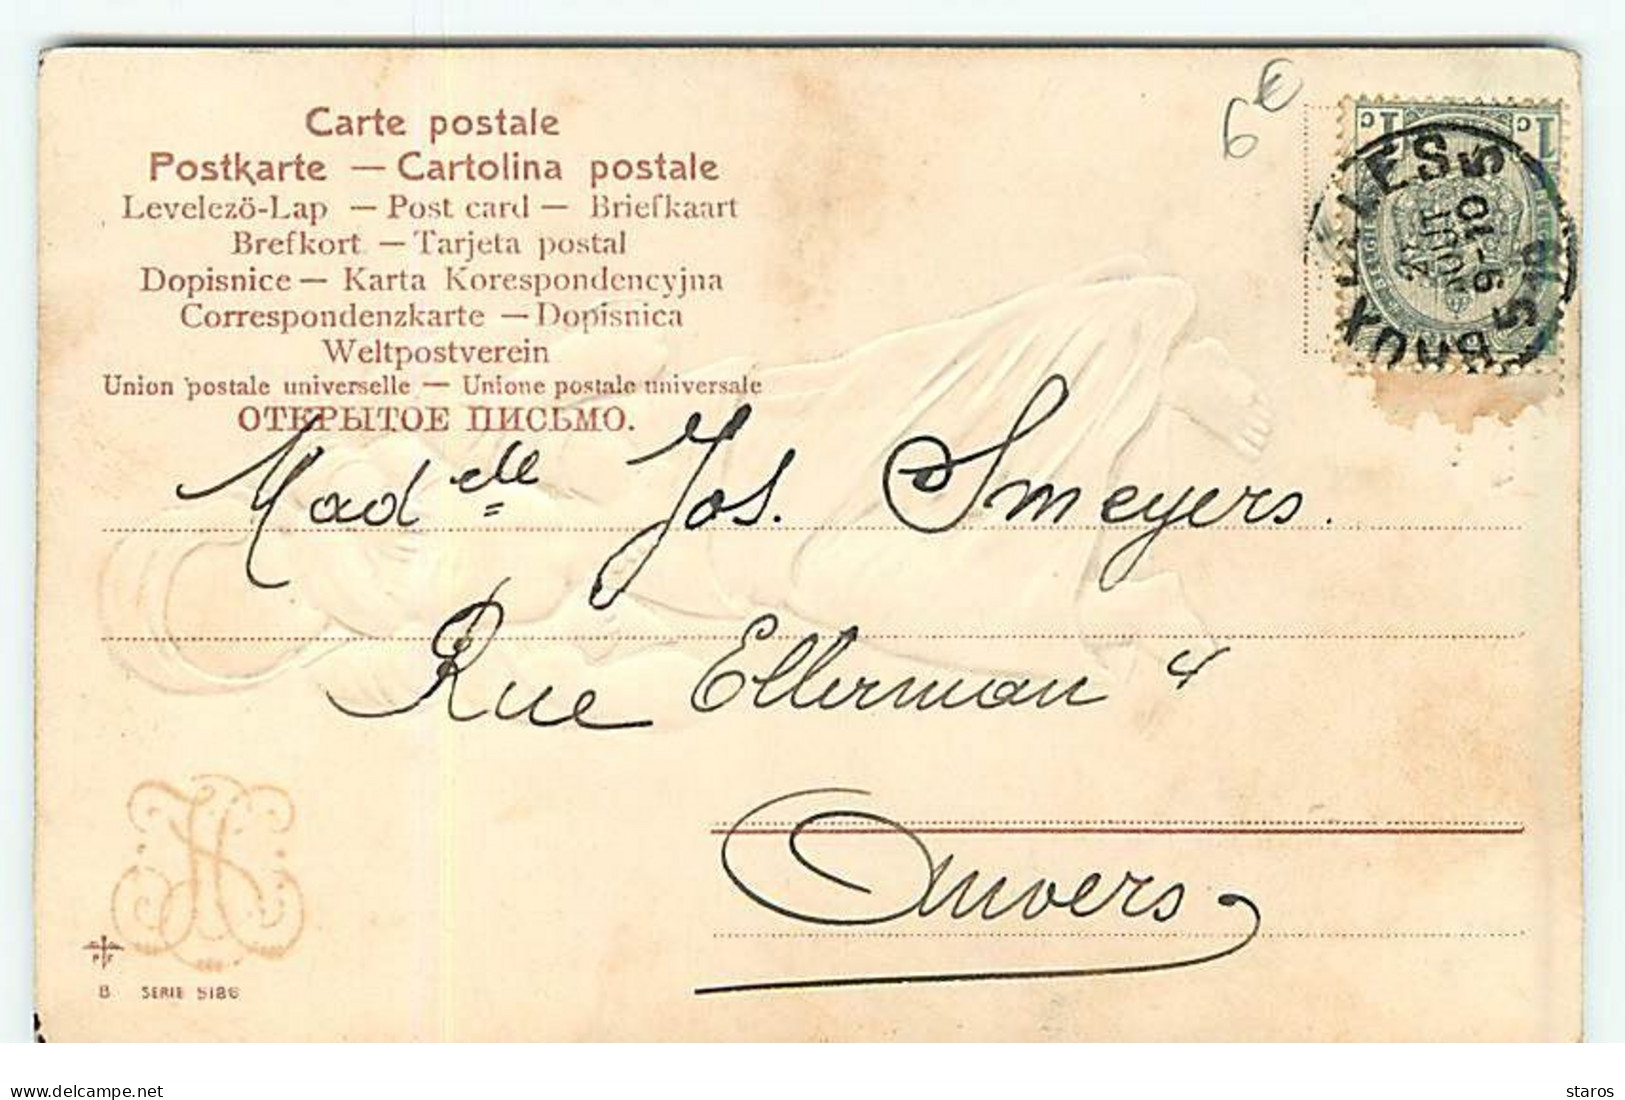 Carte postale
Postkarte — Cartolina postale
Levelezö-Lap — Post card — Briefkaart
Brefkort — Tarjeta postal
Dopisnice — Karta Korespondencyjna
Correspondenzkarte — Dopisnica
Weltpostverein
Union postale universelle — Unione postale universale
ОТКРЫТОЕ ПИСЬМО.
6€
1c 1c
BRUXELLES 5
23 AOUT 9-10 S
Madelle Jos. Smeyers.
Rue Ellerman 4
Anvers
PF
B. SERIE 5186
delcampe.net
staros